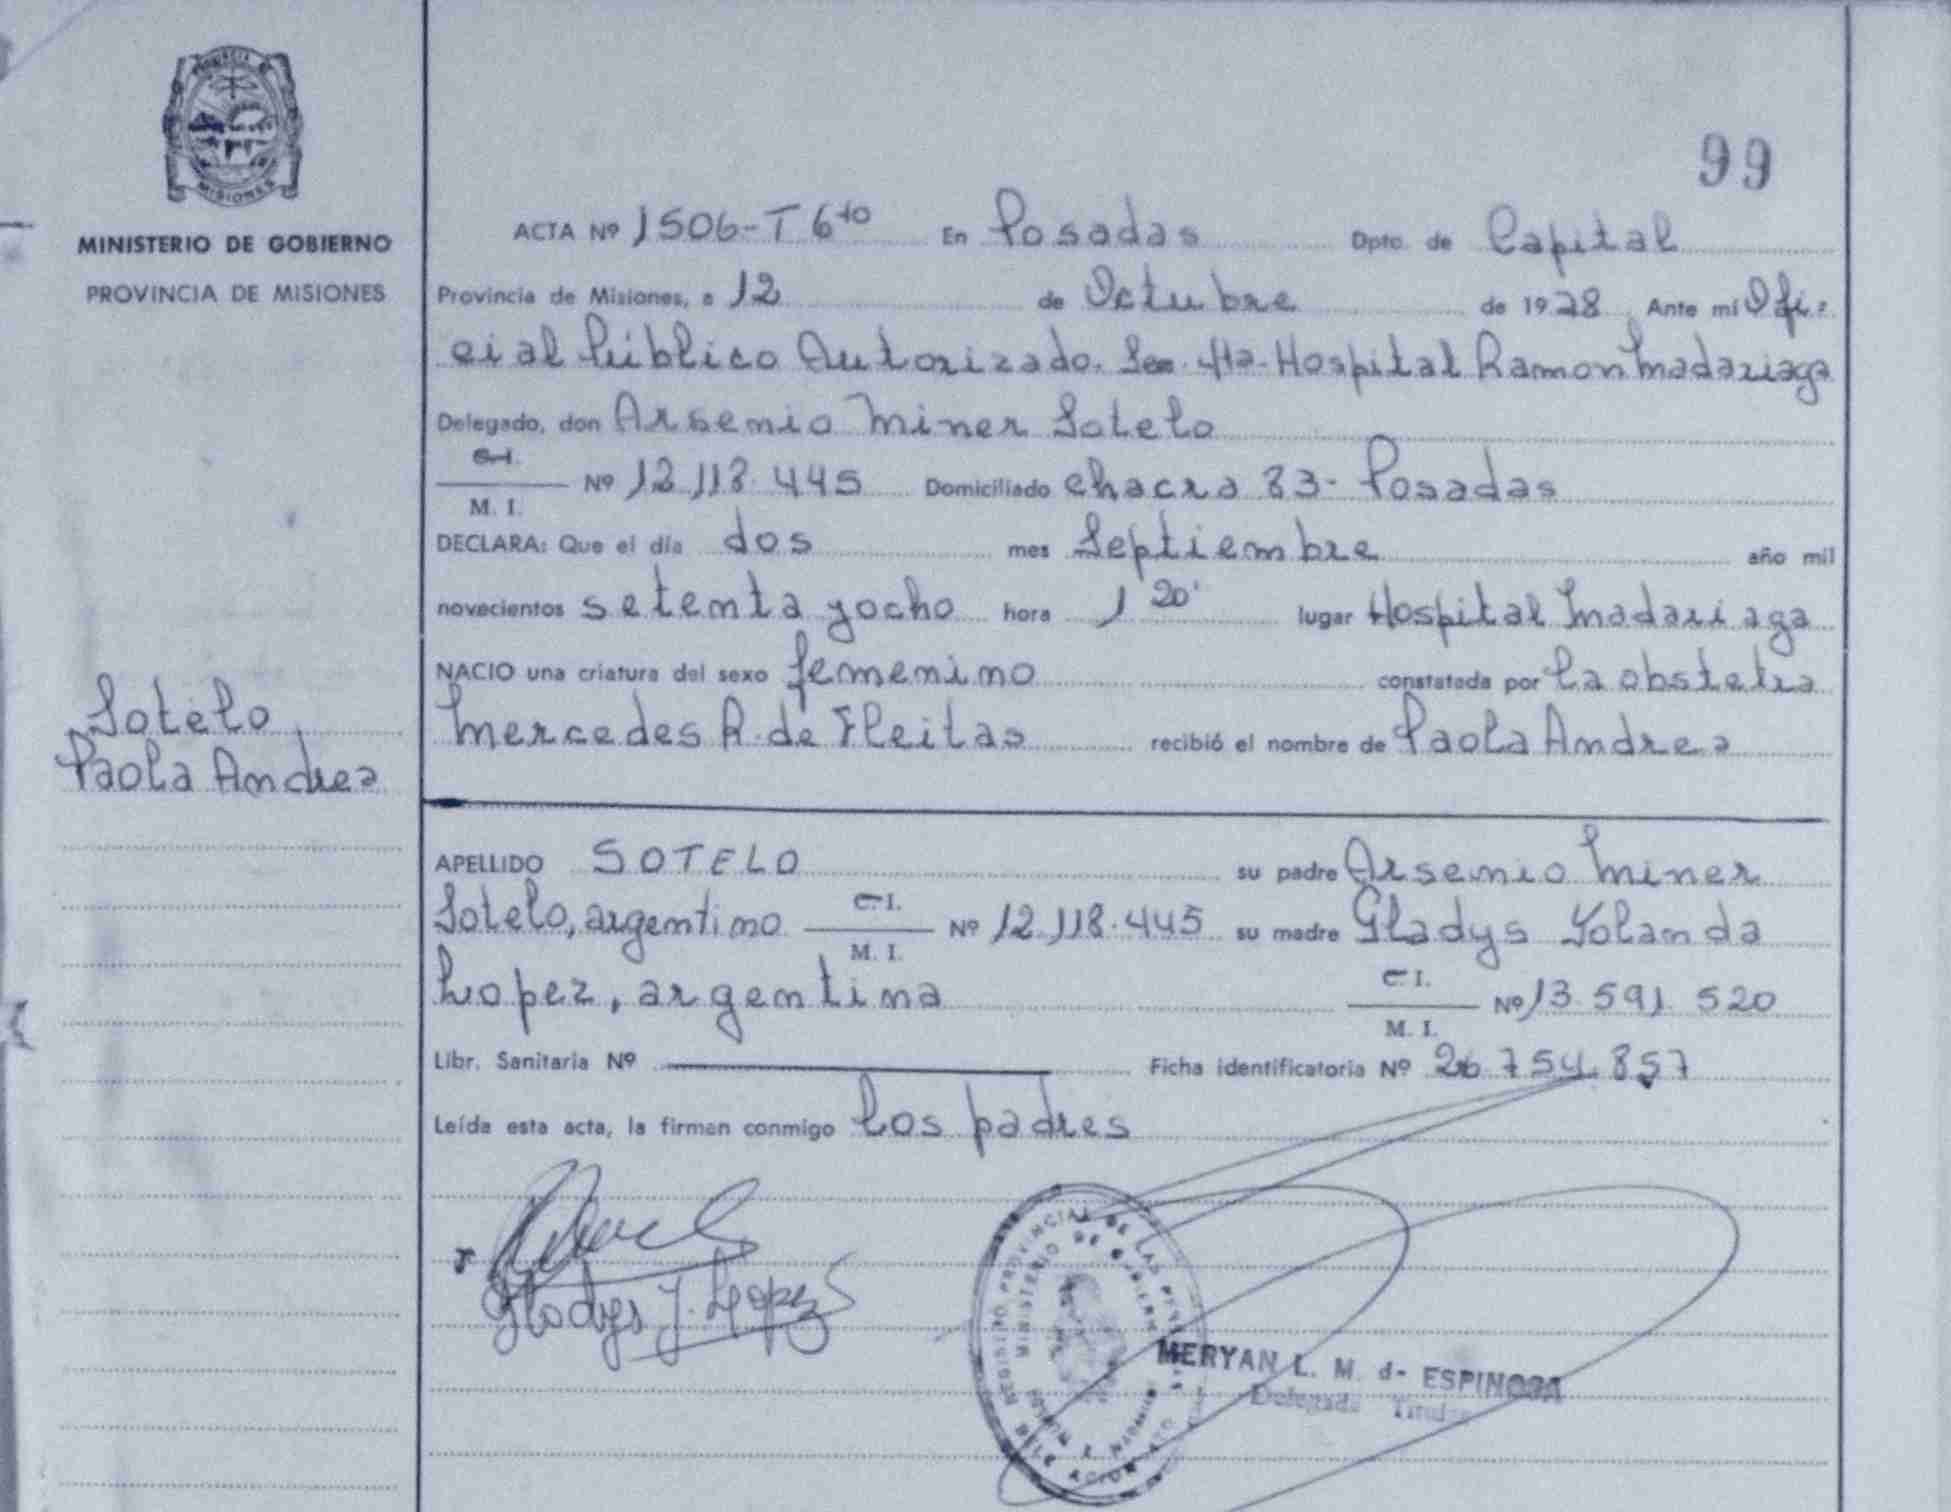 99
PROVINCIA DE
MISIONES
MINISTERIO DE GOBIERNO
PROVINCIA DE MISIONES
ACTA Nº 1506-T 6to En Posadas Dpto. de Capital
Provincia de Misiones, a 12 de Octubre de 1978 Ante mí Ofi-
cial Público Autorizado. Sec. 4ta- Hospital Ramon Madariaga
Delegado, don Arsenio Miner Sotelo
C.I. / M. I. Nº 12.118.445 Domiciliado Chacra 83- Posadas
DECLARA: Que el día dos mes Septiembre año mil
novecientos setenta yocho hora 1 20' lugar Hospital Madariaga
NACIO una criatura del sexo femenino constatada por la obstetra
Mercedes R. de Fleitas recibió el nombre de Paola Andrea
Sotelo
Paola Andrea
APELLIDO SOTELO su padre Arsenio Miner
Sotelo, argentino C.I. / M. I. Nº 12.118.445 su madre Gladys Yolanda
Lopez, argentina C.I. / M. I. Nº 13.591.520
Libr. Sanitaria Nº Ficha identificatoria Nº 26.754.857
Leída esta acta, la firman conmigo los padres
Gladys Y. Lopez
REGISTRO PROVINCIAL DE LAS PERSONAS
MINISTERIO DE GOBIERNO
MERYAN L. M. d- ESPINOSA
Delegada Titular